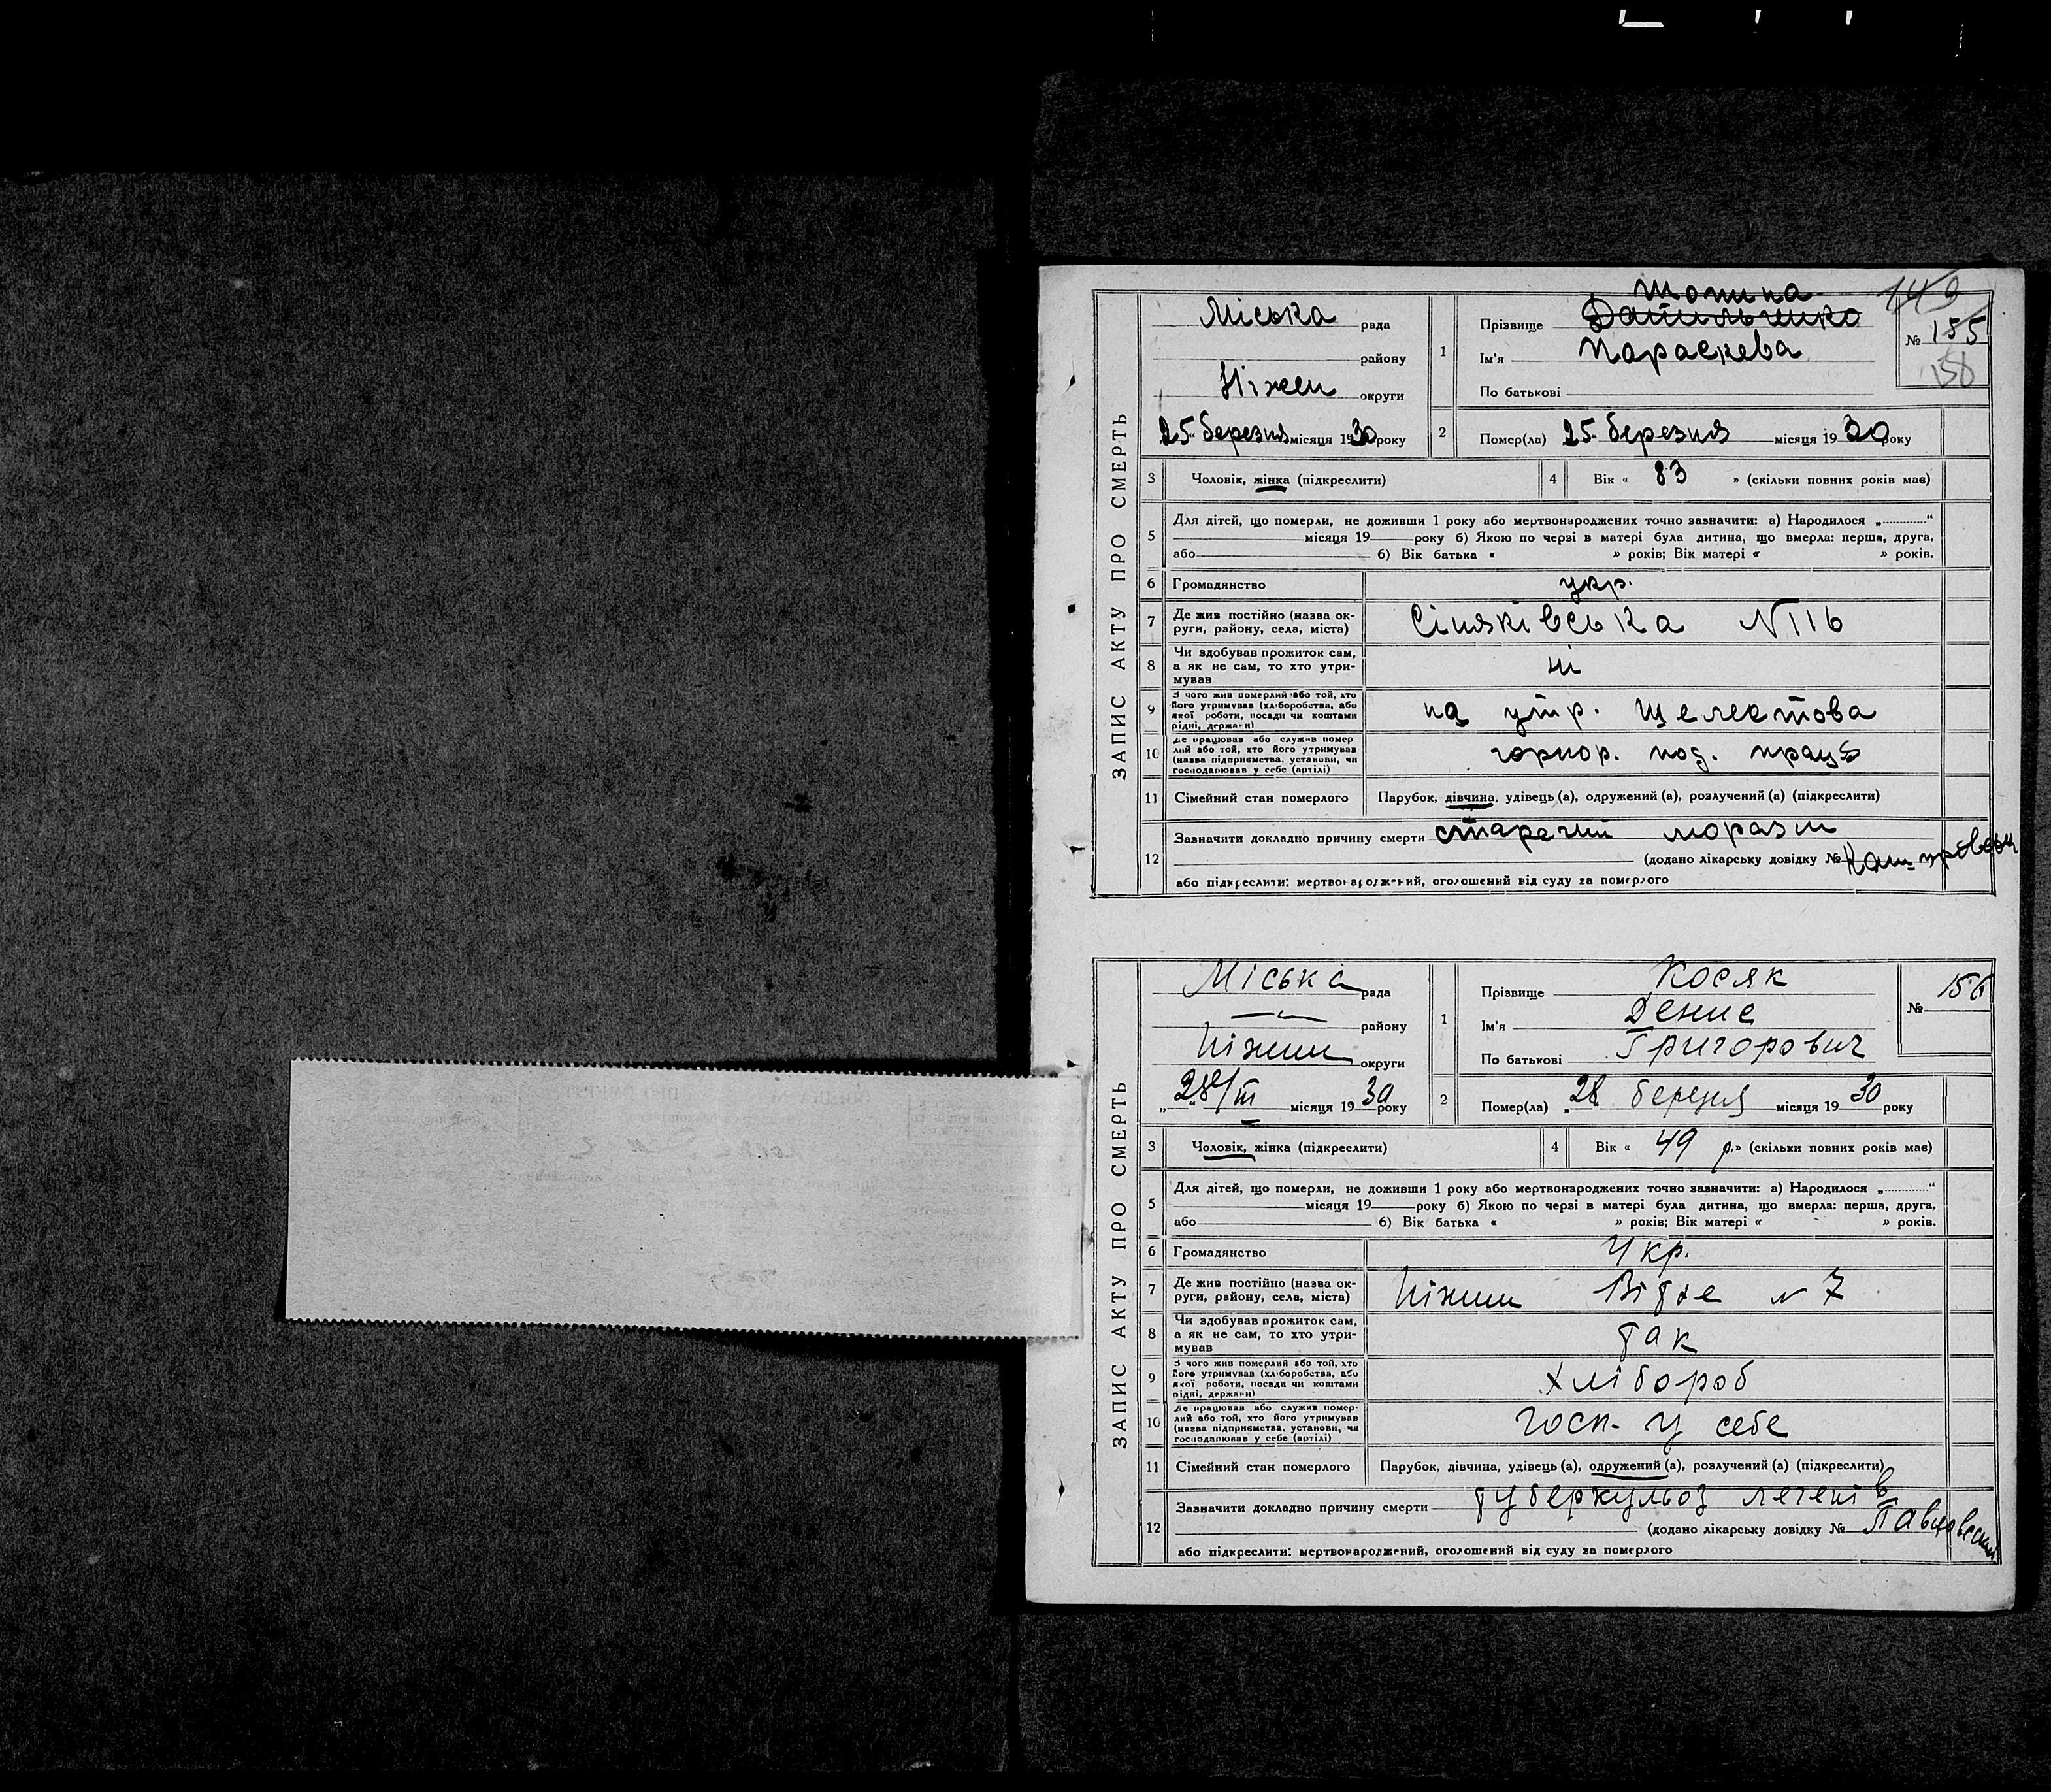 ЗАПИС АКТУ ПРО СМЕРТЬ
Міська рада
району
Ніжен округи
25 березня місяця 1930 року
1
Прізвище Данильченко
Ім'я Параскева
По батькові
149
№ 155
2 Помер(ла) 25 березня місяця 1930 року
3 Чоловік, жінка (підкреслити)
4 Вік « 83 » (скільки повних років мав)
5 Для дітей, що померли, не доживши 1 року або мертвонароджених точно зазначити: а) Народилося „............“
місяця 19 року б) Якою по черзі в матері була дитина, що вмерла: перша, друга,
або б) Вік батька « » років; Вік матері « » років.
6 Громадянство укр.
7 Де жив постійно (назва ок-
руги, району, села, міста) Сіняківська N 116
8 Чи здобував прожиток сам,
а як не сам, то хто утри-
мував ні
9 З чого жив померлий або той, хто
його утримував (хліборобства, або
якої роботи, посади чи коштами
рідні, держави) на утр.
10 Де працював або служив помер
лий або той, хто його утримував
(назва підприємства, установи, чи
господарював у себе (артілі) под. праця
11 Сімейний стан померлого Парубок, дівчина, удівець (а), одружений (а), розлучений (а) (підкреслити)
12 Зазначити докладно причину смерти старечий маразм
(додано лікарську довідку №
або підкреслити: мертвонароджений, оголошений від суду за померлого
ЗАПИС АКТУ ПРО СМЕРТЬ
Міська рада
району
Ніжин округи
„28“/III місяця 1930 року
1
Прізвище Косяк
Ім'я Денис
По батькові Григорович
№ 156
2 Помер(ла) „28 березня місяця 1930 року
3 Чоловік, жінка (підкреслити)
4 Вік « 49 р.» (скільки повних років мав)
5 Для дітей, що померли, не доживши 1 року або мертвонароджених точно зазначити: а) Народилося „............“
місяця 19 року б) Якою по черзі в матері була дитина, що вмерла: перша, друга,
або б) Вік батька « » років; Вік матері « » років.
6 Громадянство Укр.
7 Де жив постійно (назва ок-
руги, району, села, міста) Ніжин N 7
8 Чи здобував прожиток сам,
а як не сам, то хто утри-
мував так
9 З чого жив померлий або той, хто
його утримував (хліборобства, або
якої роботи, посади чи коштами
рідні, держави) хлібороб
10 Де працював або служив помер-
лий або той, хто його утримував
(назва підприємства, установи, чи
господарював у себе (артілі) госп. у себе
11 Сімейний стан померлого Парубок, дівчина, удівець (а), одружений (а), розлучений (а) (підкреслити)
12 Зазначити докладно причину смерти туберкульоз легенів
(додано лікарську довідку № Павловський
або підкреслити: мертвонароджений, оголошений від суду за померлого